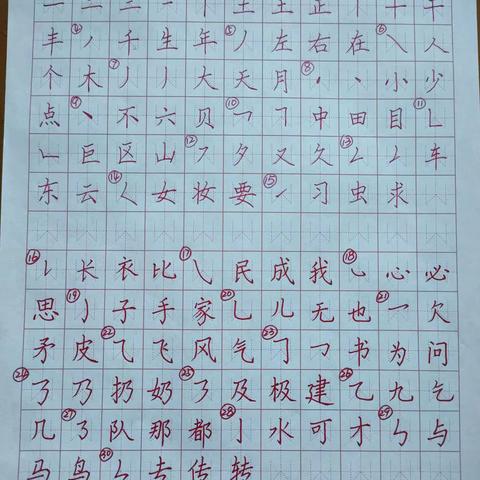 一 二 三 一 土 王 正 十 干
丰 ④ 丿 千 生 年 ⑤ 丿 左 右 在 ⑥ ㇏ 人
个 木 ⑦ 丿 丿 大 天 月 ⑧ 丶 丶 小 少
点 ⑨ 丶 不 六 贝 ⑩ 乛 ㇕ 中 田 目 ⑪ ㇗
㇗ 巨 区 山 ⑫ ㇇ 夕 又 久 ⑬ ㇜ ㇜ 车
东 云 ⑭ ㇛ 女 妆 要 ⑮ ㇀ 习 虫 求
⑯ ㇙ 长 衣 比 ⑰ ㇂ 民 成 我 ⑱ ㇃ 心 必
思 ⑲ ㇁ 子 手 家 ⑳ 乚 儿 无 也 ㉑ 乛 欠
矛 皮 ㉒ ⺄ 飞 风 气 ㉓ ㇆ ㇆ 书 为 问
㉔ ㇡ 乃 扔 奶 ㉕ ㇋ 及 极 建 ㉖ 乙 九 乞
几 ㉗ ㇌ 队 那 都 ㉘ 亅 水 可 才 ㉙ ㇉ 与
马 鸟 ㉚ ㇜ 去 传 转